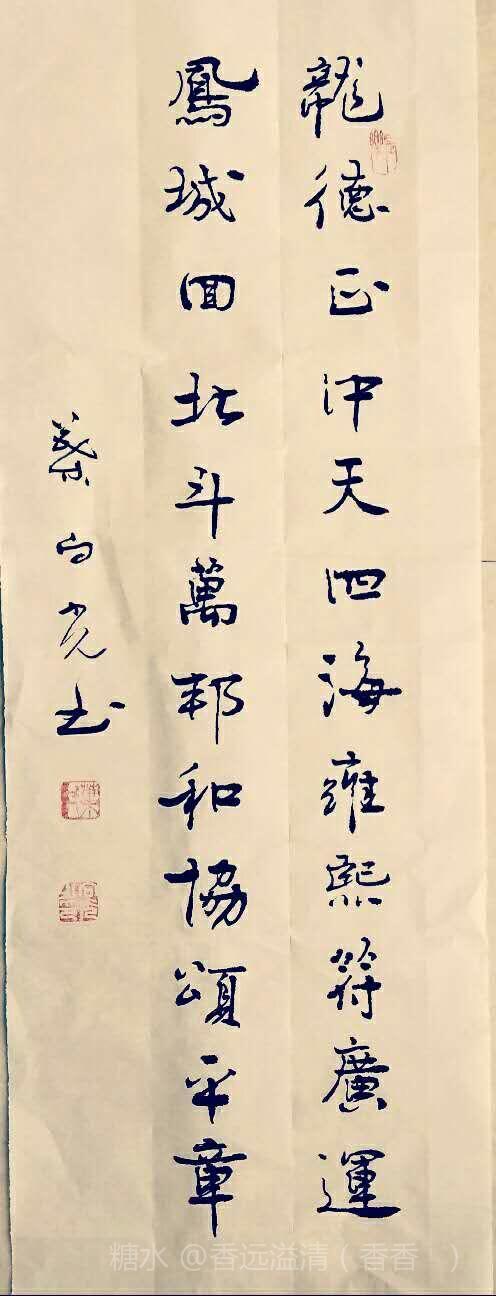 龍德正中天四海雍熙符廣運
鳳城回北斗萬邦和協頌平章
葉向光书
糖水 @香远溢清（香香 ）